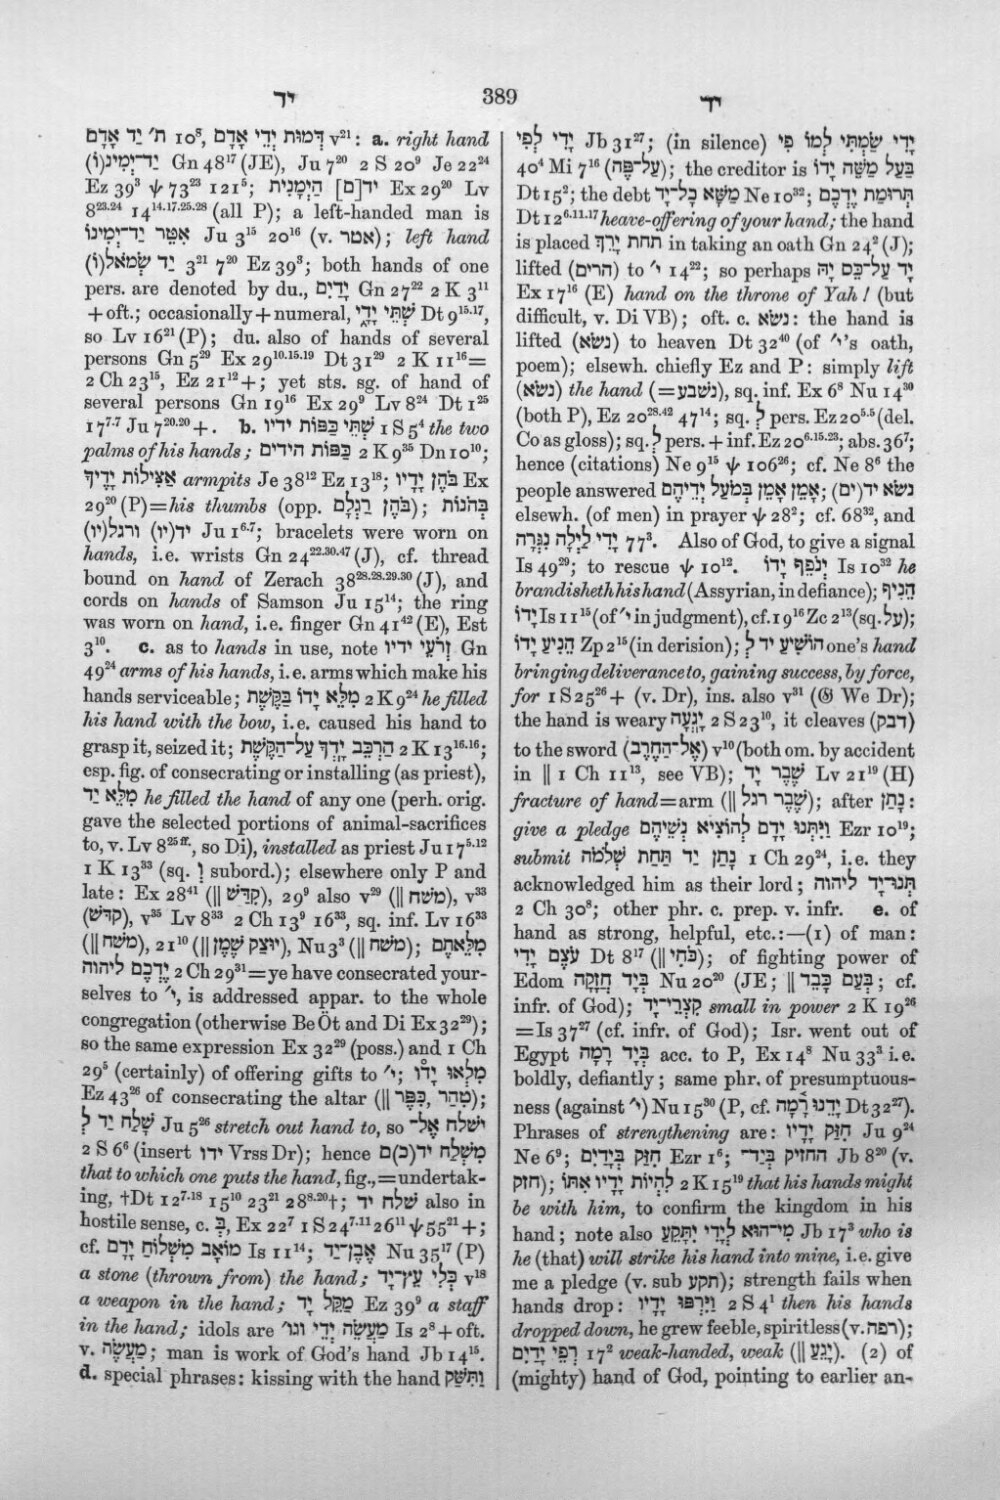 יד 389 יד
ת׳ יַד אָדָם 10⁸, דְּמוּת יְדֵי אָדָם v²¹: a. right hand
יַד־יְמִינ(וֹ) Gn 48¹⁷ (JE), Ju 7²⁰ 2 S 20⁹ Je 22²⁴
Ez 39³ ψ 73²³ 121⁵; יד[ם] הַיְמָנִית Ex 29²⁰ Lv
8²³·²⁴ 14¹⁴·¹⁷·²⁵·²⁸ (all P); a left-handed man is
אִטֵּר יַד־יְמִינוֹ Ju 3¹⁵ 20¹⁶ (v. אטר); left hand
יַד שְׂמֹאל(וֹ) 3²¹ 7²⁰ Ez 39³; both hands of one
pers. are denoted by du., יָדַיִם Gn 27²² 2 K 3¹¹
+ oft.; occasionally + numeral, שְׁתֵּי יָדָי Dt 9¹⁵·¹⁷,
so Lv 16²¹ (P); du. also of hands of several
persons Gn 5²⁹ Ex 29¹⁰·¹⁵·¹⁹ Dt 31²⁹ 2 K 11¹⁶=
2 Ch 23¹⁵, Ez 21¹²+; yet sts. sg. of hand of
several persons Gn 19¹⁶ Ex 29⁹ Lv 8²⁴ Dt 1²⁵
17⁷·⁷ Ju 7²⁰·²⁰+. b. שְׁתֵּי כַּפּוֹת יָדָיו 1 S 5⁴ the two
palms of his hands; כַּפּוֹת הידים 2 K 9³⁵ Dn 10¹⁰;
אַצִּילוֹת יָדֶיךָ armpits Je 38¹² Ez 13¹⁸; בֹּהֶן יָדָיו Ex
29²⁰ (P)=his thumbs (opp. בֹּהֶן רַגְלָם); בְּהֹנוֹת
יד(יו) ורגל(יו) Ju 1⁶·⁷; bracelets were worn on
hands, i.e. wrists Gn 24²²·³⁰·⁴⁷ (J), cf. thread
bound on hand of Zerach 38²⁸·²⁸·²⁹·³⁰ (J), and
cords on hands of Samson Ju 15¹⁴; the ring
was worn on hand, i.e. finger Gn 41⁴² (E), Est
3¹⁰. c. as to hands in use, note זְרֹעֵי ידיו Gn
49²⁴ arms of his hands, i.e. arms which make his
hands serviceable; מִלֵּא יָדוֹ בַקֶּשֶׁת 2 K 9²⁴ he filled
his hand with the bow, i.e. caused his hand to
grasp it, seized it; הַרְכֵּב יָדְךָ עַל־הַקֶּשֶׁת 2 K 13¹⁶·¹⁶;
esp. fig. of consecrating or installing (as priest),
מִלֵּא יַד he filled the hand of any one (perh. orig.
gave the selected portions of animal-sacrifices
to, v. Lv 8²⁵ ᶠᶠ·, so Di), installed as priest Ju 17⁵·¹²
1 K 13³³ (sq. וְ subord.); elsewhere only P and
late: Ex 28⁴¹ (‖ קִדַּשׁ), 29⁹ also v²⁹ (‖ משׁח), v³³
(קדּשׁ), v³⁵ Lv 8³³ 2 Ch 13⁹ 16³³, sq. inf. Lv 16³³
(‖ משׁח), 21¹⁰ (‖ יוּצַק שֶׁמֶן), Nu 3³ (‖ משׁח); מִלֵּאתֶם
יֶדְכֶם ליהוה 2 Ch 29³¹=ye have consecrated your-
selves to י׳, is addressed appar. to the whole
congregation (otherwise Be Öt and Di Ex 32²⁹);
so the same expression Ex 32²⁹ (poss.) and 1 Ch
29⁵ (certainly) of offering gifts to י׳; מִלְאוּ יָדוֹ
Ez 43²⁶ of consecrating the altar (‖ טִהַר ,כִּפֶּר);
שָׁלַח יַד לְ Ju 5²⁶ stretch out hand to, so ישׁלח אֶל־
2 S 6⁶ (insert ידו Vrss Dr); hence מִשְׁלַח יד(כ)ם
that to which one puts the hand, fig.,=undertak-
ing, †Dt 12⁷·¹⁸ 15¹⁰ 23²¹ 28⁸·²⁰†; שׁלח יד also in
hostile sense, c. בְּ, Ex 22⁷ 1 S 24⁷·¹¹ 26¹¹ ψ 55²¹+;
cf. מוֹאָב מִשְׁלוֹחַ יָדָם Is 11¹⁴; אֶבֶן־יַד Nu 35¹⁷ (P)
a stone (thrown from) the hand; כְּלִי עֵץ־יָד v¹⁸
a weapon in the hand; מַקֵּל יָד Ez 39⁹ a staff
in the hand; idols are מַעֲשֵׂה יְדֵי וגו׳ Is 2⁸+ oft.
v. מַעֲשֶׂה; man is work of God's hand Jb 14¹⁵.
d. special phrases: kissing with the hand וַתִּשַּׁק
יָדִי לְפִי Jb 31²⁷; (in silence) יָדִי שַׂמְתִּי לְמוֹ פִי
40⁴ Mi 7¹⁶ (עַל־פֶּה); the creditor is בַּעַל מַשֵּׁה יָדוֹ
Dt 15²; the debt מַשָּׁא כָל־יָד Ne 10³²; תְּרוּמַת יֶדְכֶם
Dt 12⁶·¹¹·¹⁷ heave-offering of your hand; the hand
is placed תחת יָרֵךְ in taking an oath Gn 24² (J);
lifted (הרים) to י׳ 14²²; so perhaps יָד עַל־כֵּס יָהּ
Ex 17¹⁶ (E) hand on the throne of Yah! (but
difficult, v. Di VB); oft. c. נשׂא: the hand is
lifted (נשׂא) to heaven Dt 32⁴⁰ (of י׳'s oath,
poem); elsewh. chiefly Ez and P: simply lift
(נשׂא) the hand (=נשׁבע), sq. inf. Ex 6⁸ Nu 14³⁰
(both P), Ez 20²⁸·⁴² 47¹⁴; sq. לְ pers. Ez 20⁵·⁵ (del.
Co as gloss); sq. לְ pers. + inf. Ez 20⁶·¹⁵·²³; abs. 36⁷;
hence (citations) Ne 9¹⁵ ψ 106²⁶; cf. Ne 8⁶ the
people answered אָמֵן אָמֵן בְּמֹעַל יְדֵיהֶם; נשׂא יד(ים)
elsewh. (of men) in prayer ψ 28²; cf. 68³², and
יָדִי לַיְלָה נִגְּרָה 77³. Also of God, to give a signal
Is 49²⁹; to rescue ψ 10¹². יְנֹפֵף יָדוֹ Is 10³² he
brandisheth his hand (Assyrian, in defiance); הֵנִיף
יָדוֹ Is 11¹⁵ (of י׳ in judgment), cf. 19¹⁶ Zc 2¹³ (sq. על);
הֵנִיעַ יָדוֹ Zp 2¹⁵ (in derision); הוֹשִׁיעַ יד לְ one's hand
bringing deliverance to, gaining success, by force,
for 1 S 25²⁶+ (v. Dr), ins. also v³¹ (𝔊 We Dr);
the hand is weary יָגְעָה 2 S 23¹⁰, it cleaves (דבק)
to the sword (אֶל־הַחֶרֶב) v¹⁰ (both om. by accident
in ‖ 1 Ch 11¹³, see VB); שֶׁבֶר יָד Lv 21¹⁹ (H)
fracture of hand=arm (‖ שֶׁבֶר רגל); after נָתַן:
give a pledge וַיִּתְּנוּ יָדָם לְהוֹצִיא נְשֵׁיהֶם Ezr 10¹⁹;
submit נָתַן יַד תַּחַת שְׁלֹמֹה 1 Ch 29²⁴, i.e. they
acknowledged him as their lord; תְּנוּ־יָד ליהוה
2 Ch 30⁸; other phr. c. prep. v. infr. e. of
hand as strong, helpful, etc.:—(1) of man:
עֹצֶם יָדִי Dt 8¹⁷ (‖ כֹּחִי); of fighting power of
Edom בְּיָד חֲזָקָה Nu 20²⁰ (JE; ‖ בְּעַם כָּבֵד; cf.
infr. of God); קִצְרֵי־יָד small in power 2 K 19²⁶
=Is 37²⁷ (cf. infr. of God); Isr. went out of
Egypt בְּיָד רָמָה acc. to P, Ex 14⁸ Nu 33³ i.e.
boldly, defiantly; same phr. of presumptuous-
ness (against י׳) Nu 15³⁰ (P, cf. יָדֵנוּ רָמָה Dt 32²⁷).
Phrases of strengthening are: חִזַּק יָדָיו Ju 9²⁴
Ne 6⁹; חִזַּק בִּידַיִם Ezr 1⁶; החזיק בְּיַד־ Jb 8²⁰ (v.
חזק); לִהְיוֹת יָדָיו אִתּוֹ 2 K 15¹⁹ that his hands might
be with him, to confirm the kingdom in his
hand; note also מִי־הוּא לְיָדִי יִתָּקֵעַ Jb 17³ who is
he (that) will strike his hand into mine, i.e. give
me a pledge (v. sub תקע); strength fails when
hands drop: וַיִּרְפּוּ יָדָיו 2 S 4¹ then his hands
dropped down, he grew feeble, spiritless (v. רפה);
רְפֵי יָדַיִם 17² weak-handed, weak (‖ יָגֵעַ). (2) of
(mighty) hand of God, pointing to earlier an-